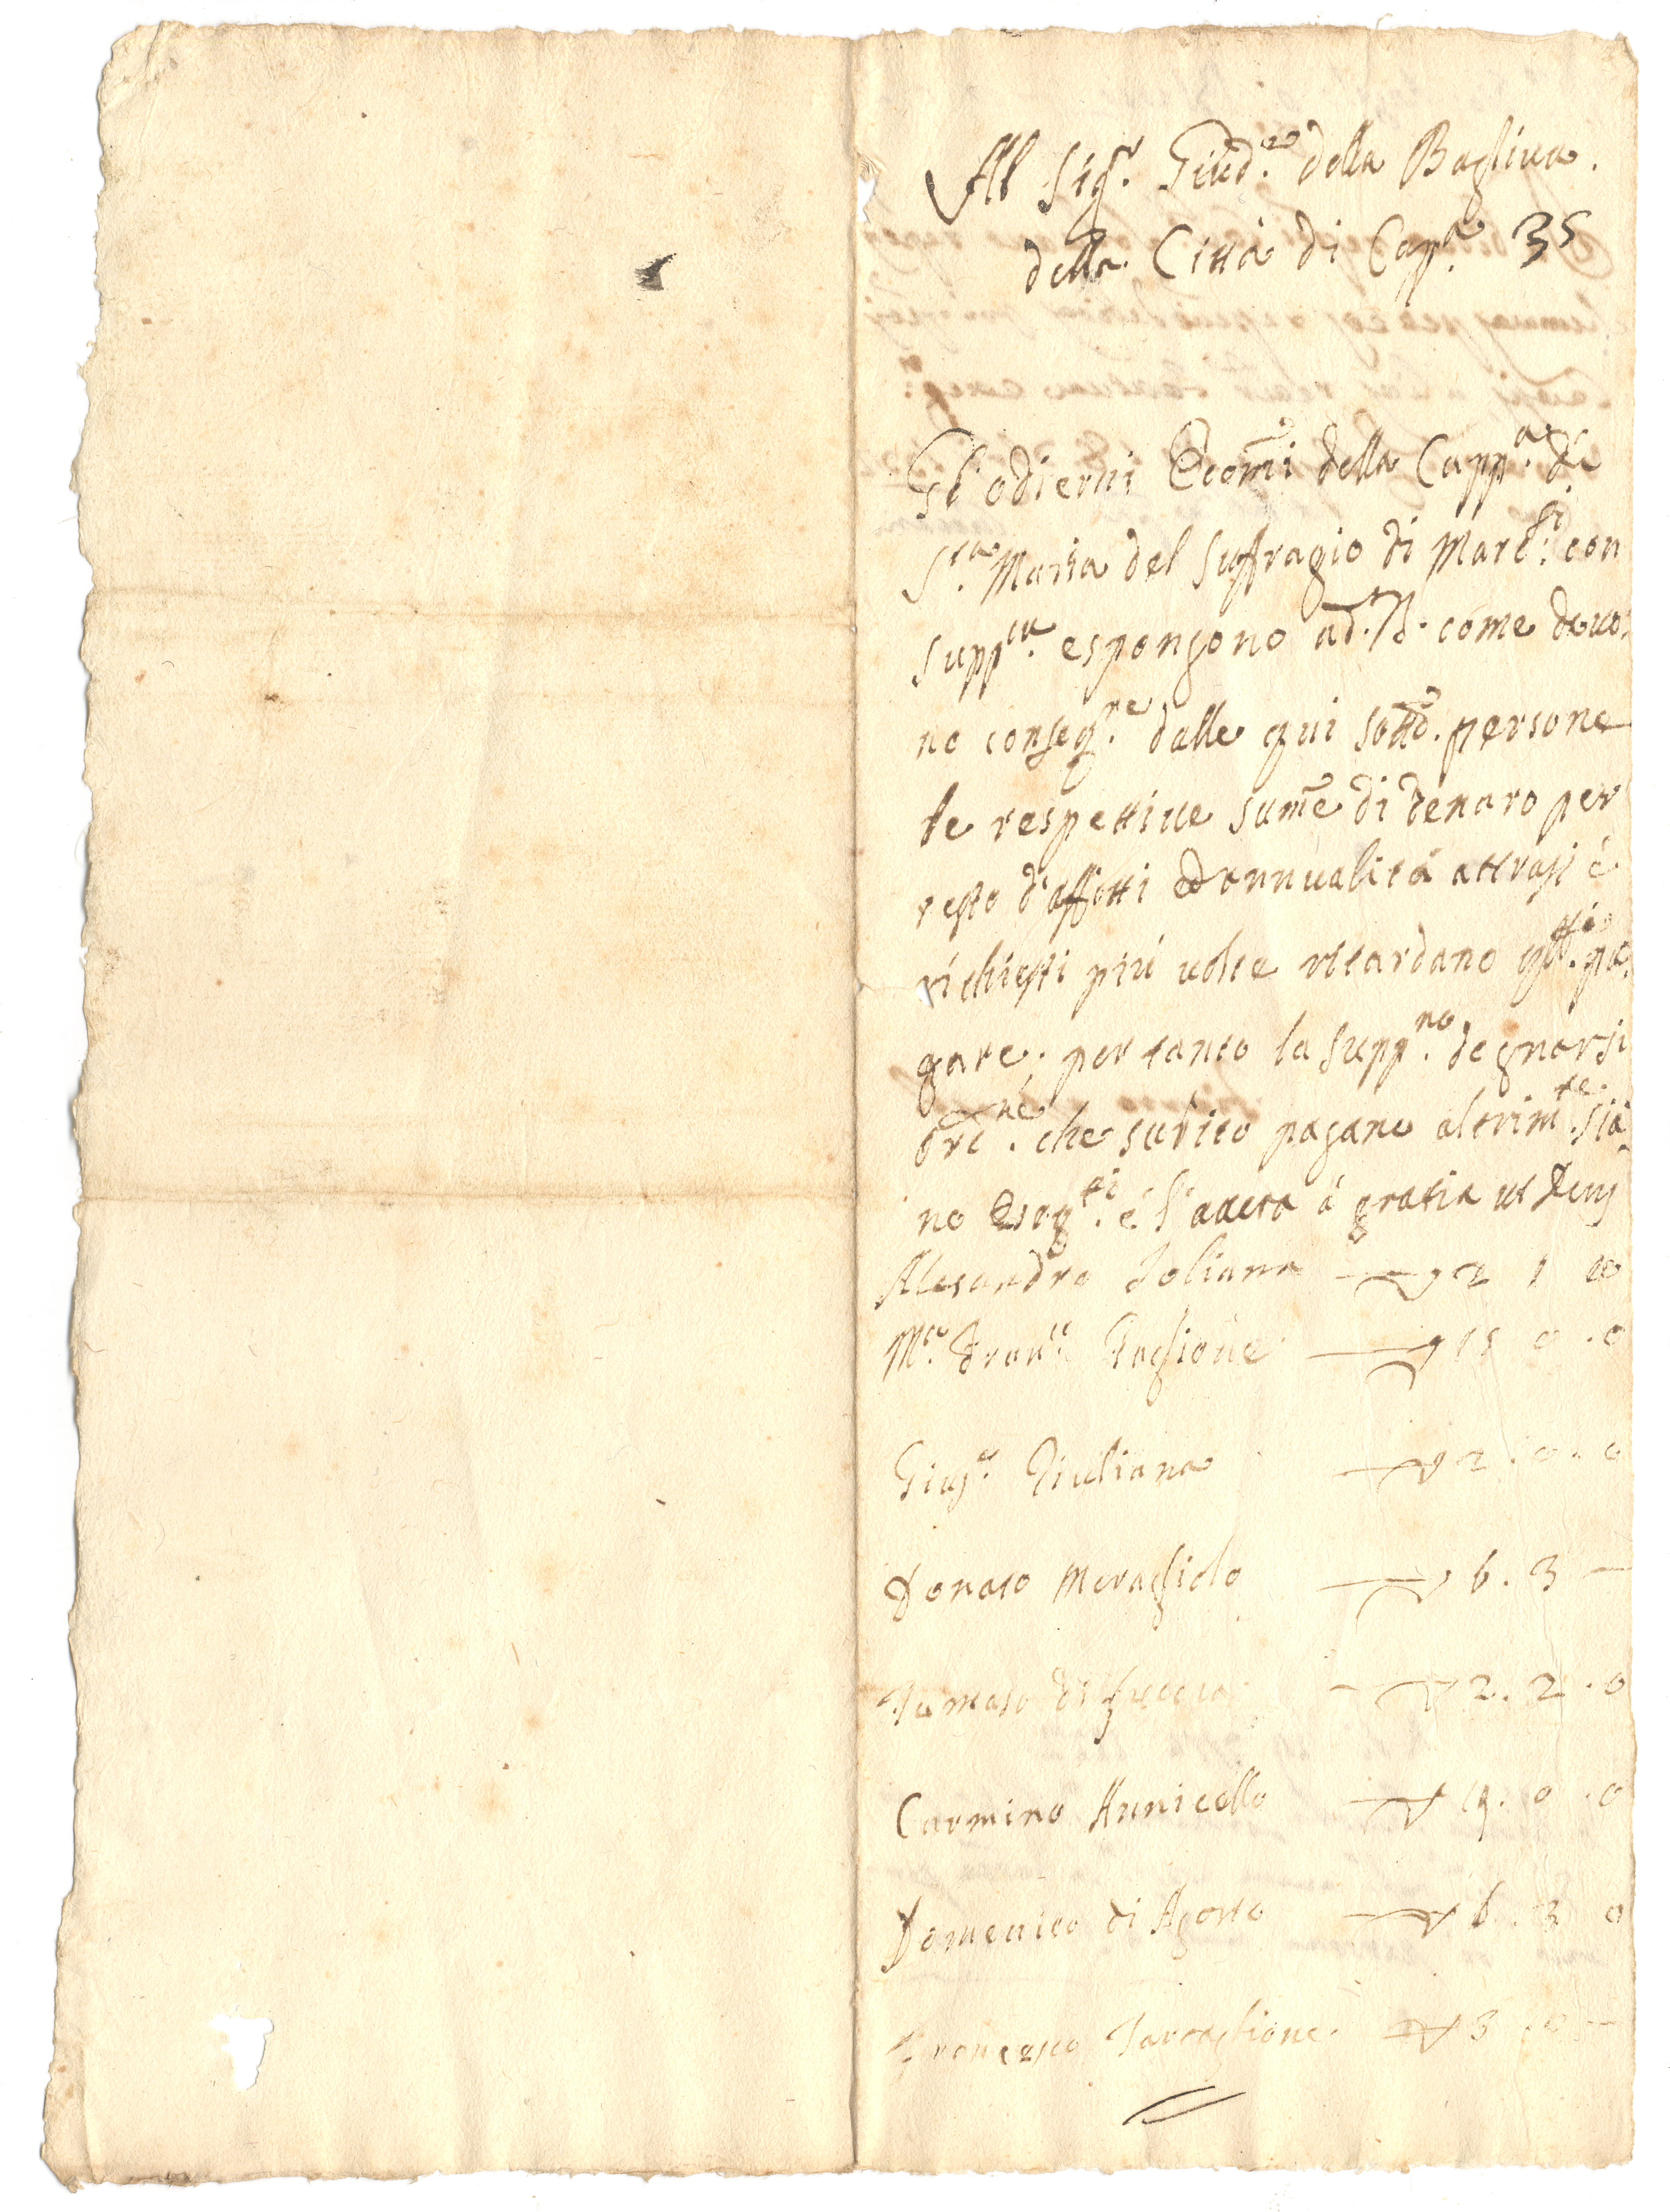 Al Sig.r Giud.ce della Bagliva
della Città di Cap.a 35
Gl'odierni Economi della Capp.a di
S.ta Maria del Suffragio di Marc.si con
supp.ca espongono ad. V.S. come devo:
no conseg.re dalle qui sotto. persone
le respettive summe di denaro per
resto d'affitti ed annualità attrassi è
richiesti più volte ritardano pa:
gare. per tanto la supp.no degnarsi
ord.ne che subito pagano altrim.te sia
no eseq.ti è l'averà à gratia ut Deus
Alesandro Joliano 2 1 00
M.o Fran.co Taglione 15 0 . 0
Gius.e Giuliano 2 . 0 . 0
Donato Meragliolo 6 . 3 —
Tomaso di 2 . 2 . 0
Carmino Aunicello 19 . 0 . 0
Domenico di Agosto 6 . 3 0
Francesco Tartaglione 3